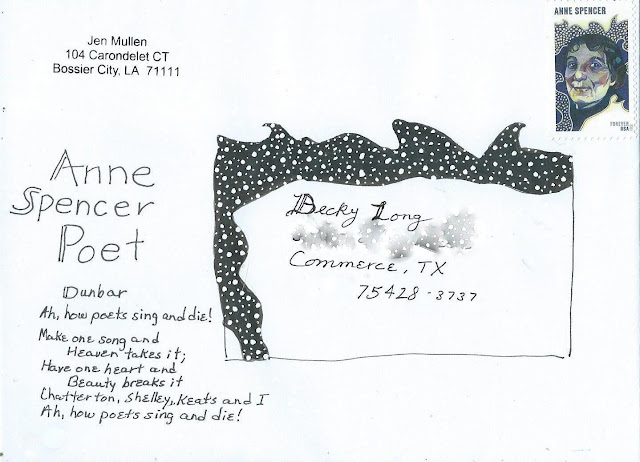 Jen Mullen
104 Carondelet CT
Bossier City, LA 71111
ANNE SPENCER
FOREVER
USA
Anne
Spencer
Poet
Dunbar
Ah, how poets sing and die!
Make one song and
Heaven takes it;
Have one heart and
Beauty breaks it
Chatterton, Shelley, Keats and I
Ah, how poets sing and die!
Becky Long
Commerce, TX
75428-3737